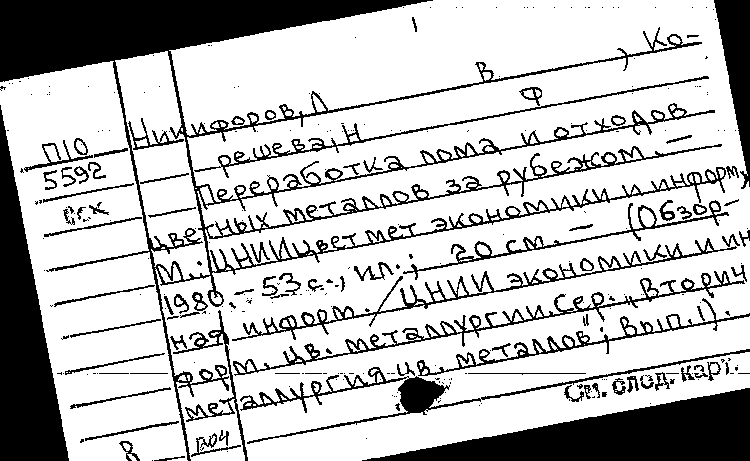 Никифоров, Л В, Ко-
П10 решева, Н Ф
5592 Переработка лома и отходов
цветных металлов за рубежом. —
М.: ЦНИИцветмет экономики и информ.,
1980. — 53 с., ил.; 20 см. — (Обзор-
ная информ. / ЦНИИ экономики и ин
форм. цв. металлургии. Сер. „Вторич
металлургия цв. металлов"; Вып. 1).
См. след. карт.
В 1204